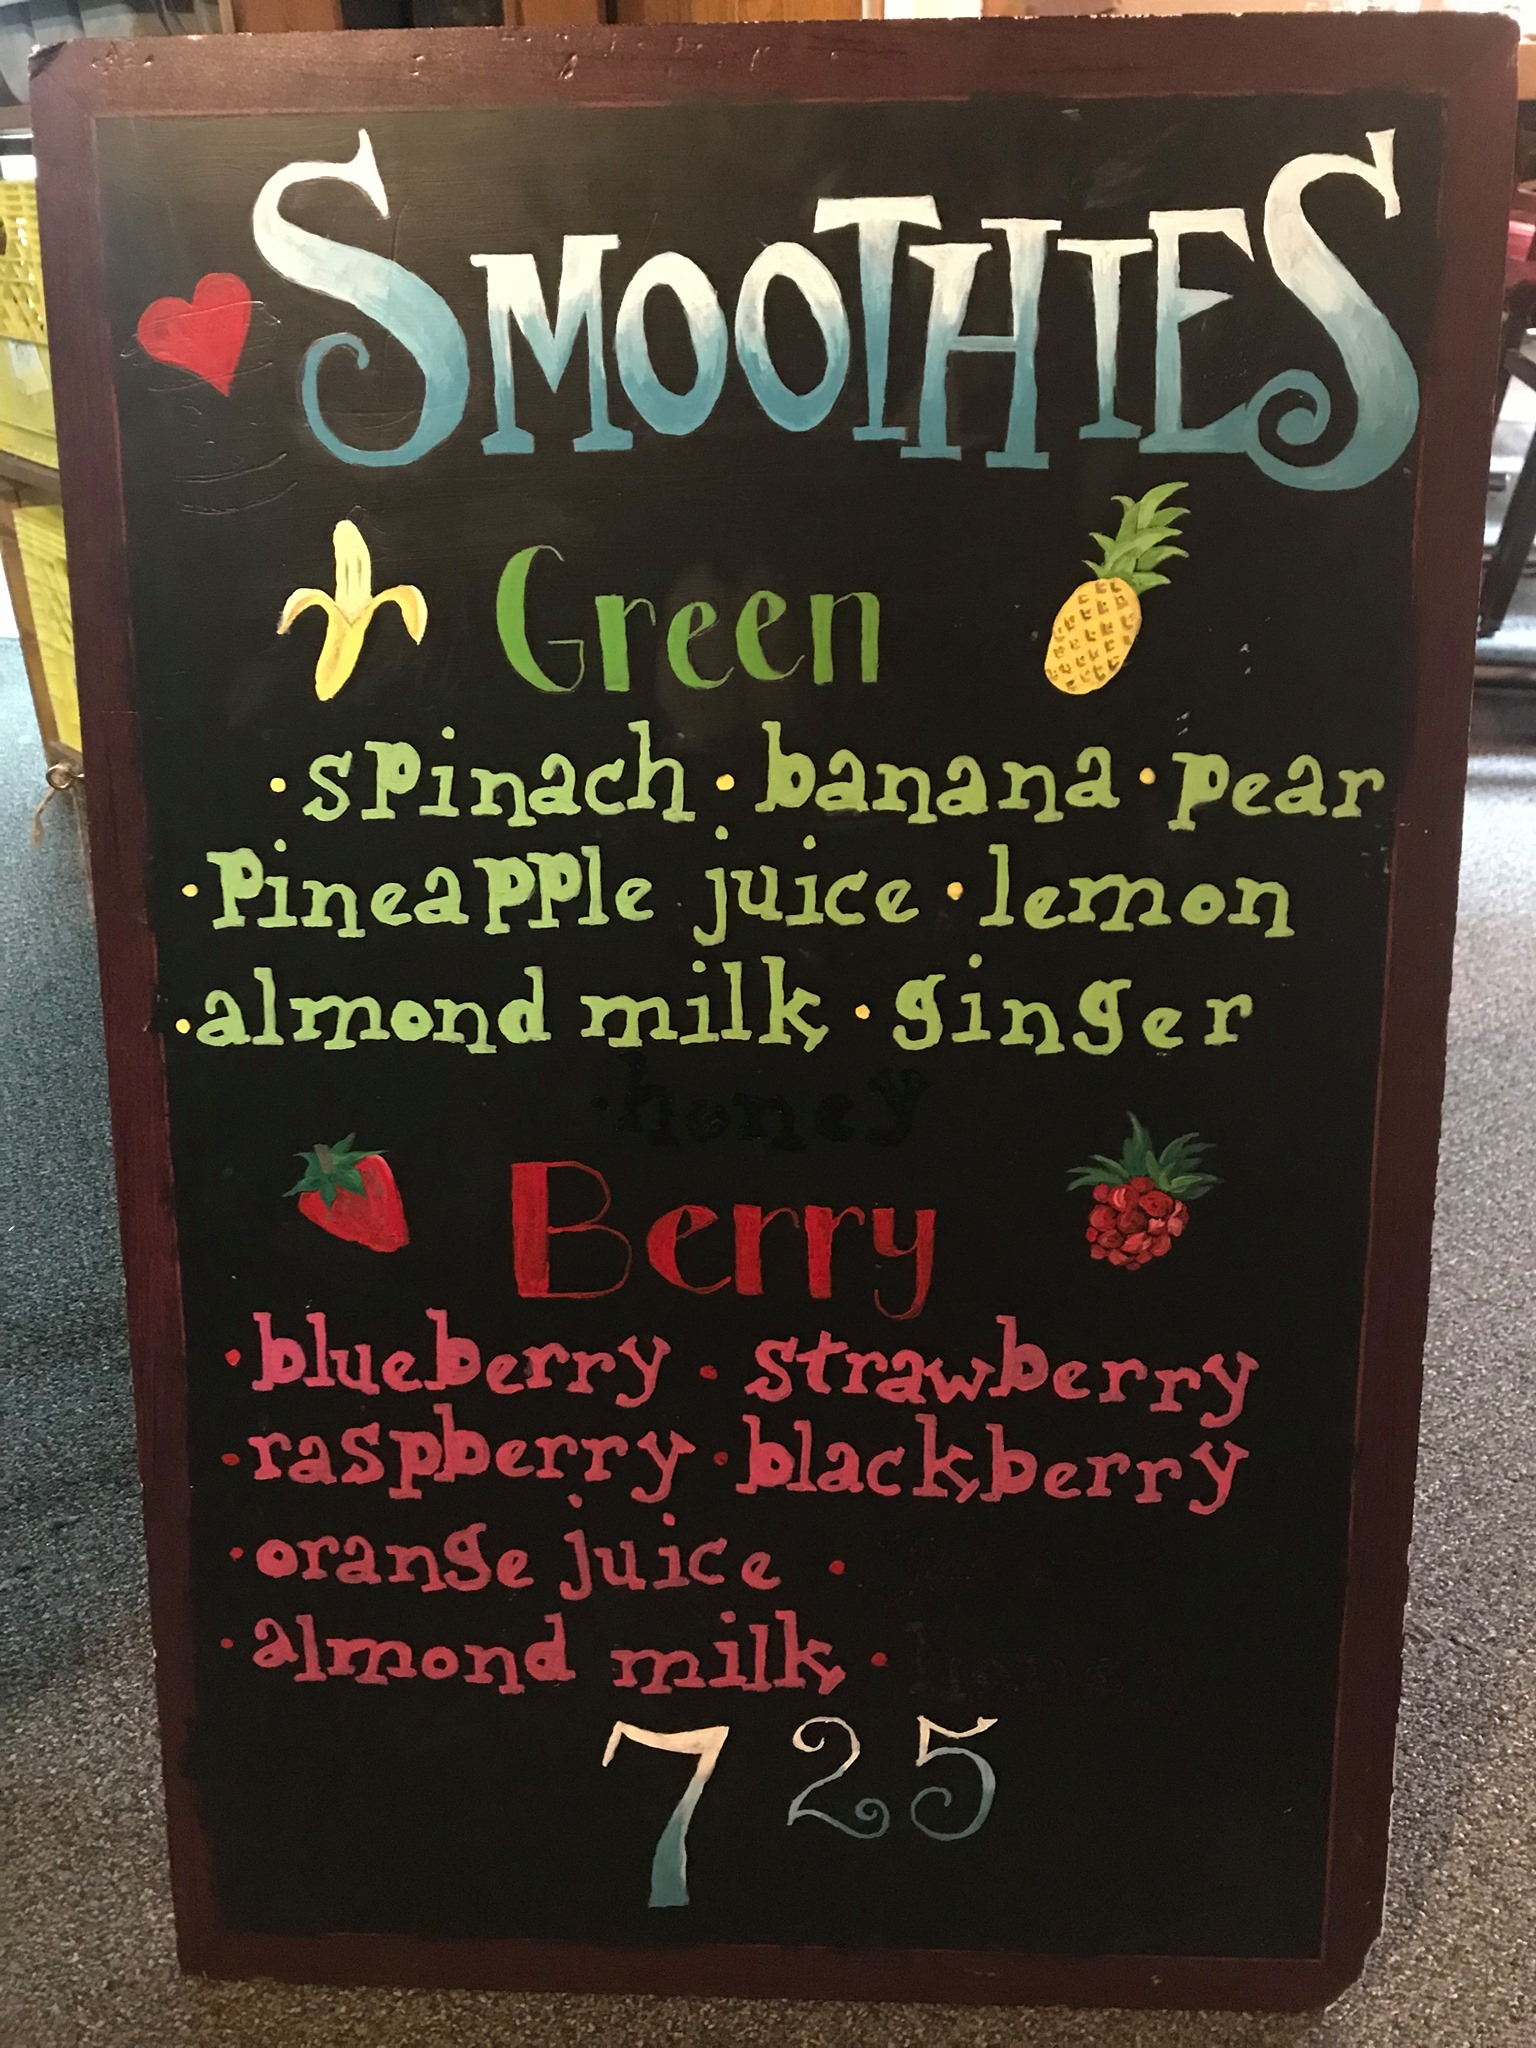 SMOOTHIES
Green
• spinach • banana • pear
• Pineapple juice • lemon
• almond milk • ginger
• honey
Berry
• blueberry • strawberry
• raspberry • blackberry
• orange juice •
• almond milk •
7 25